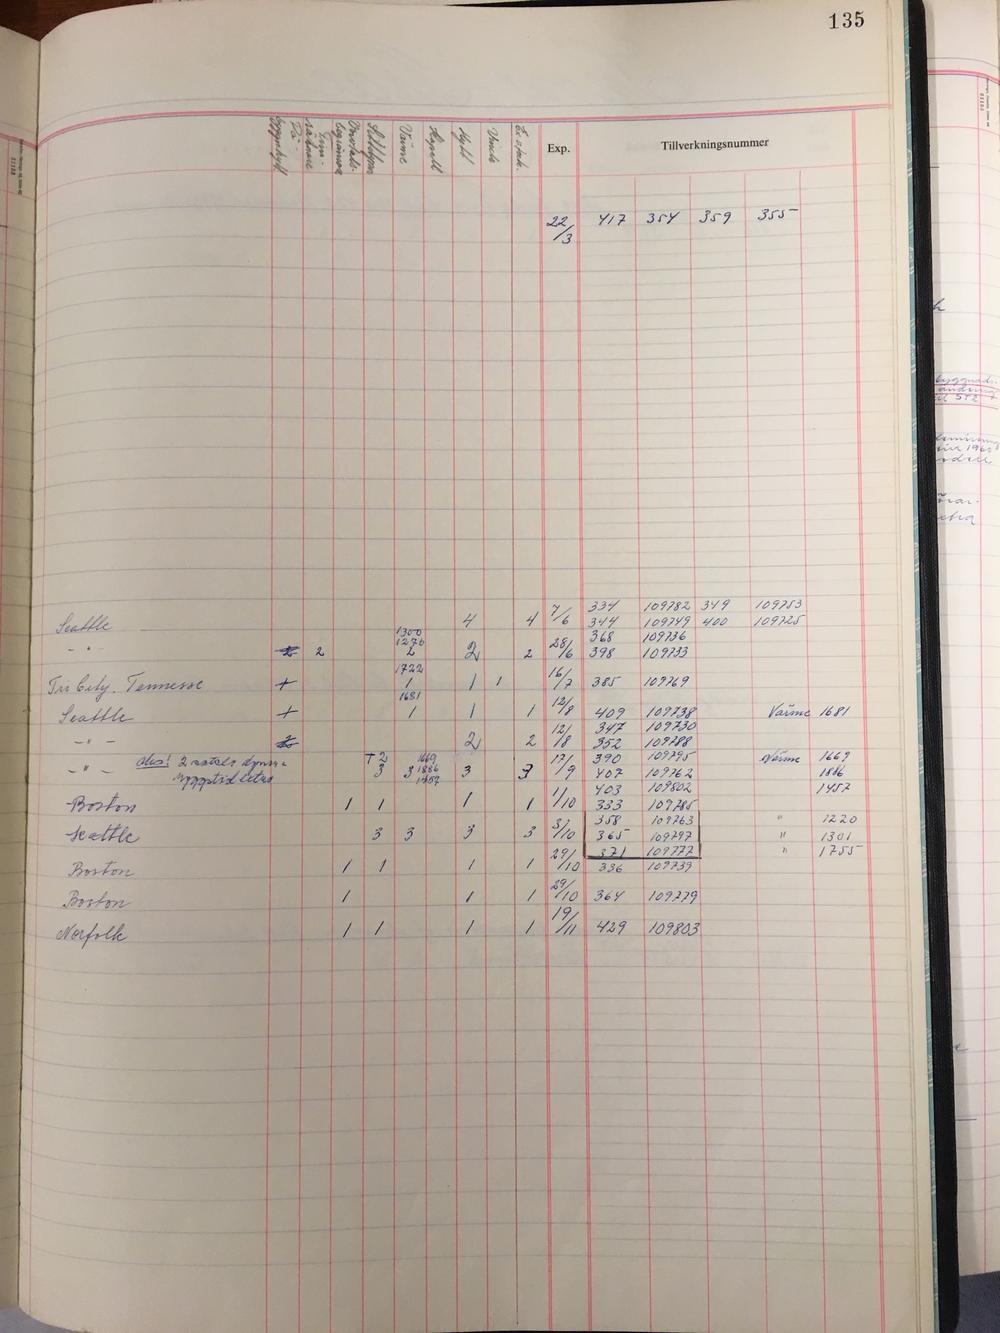 135
Värme
Exp.
Tillverkningsnummer
22/3 417 354 359 355
7/6 334 109782 349 109753
Seattle 4 4 344 109749 400 109725
1300
1270 368 109736
- " - 2 2 2 2 2 28/6 398 109733
1722
Tri City. Tennesse + 1 1 1 16/7 385 109769
1681
Seattle + 1 1 1 12/8 409 109738 Värme 1681
347 109730
- " - 2 2 2 12/8 352 109788
obs! 2 T 2 1669 390 109795 Värme 1669
- " - 3 3 1886 3 3 17/9 407 109762 1886
1457 403 109802 1457
Boston 1 1 1 1 1/10 333 109785
358 109763 " 1220
Seattle 3 3 3 3 3/10 365 109797 " 1301
371 109777 " 1755
Boston 1 1 1 1 29/10 336 109739
Boston 1 1 1 29/10 364 109779
Norfolk 1 1 1 1 19/11 429 109803